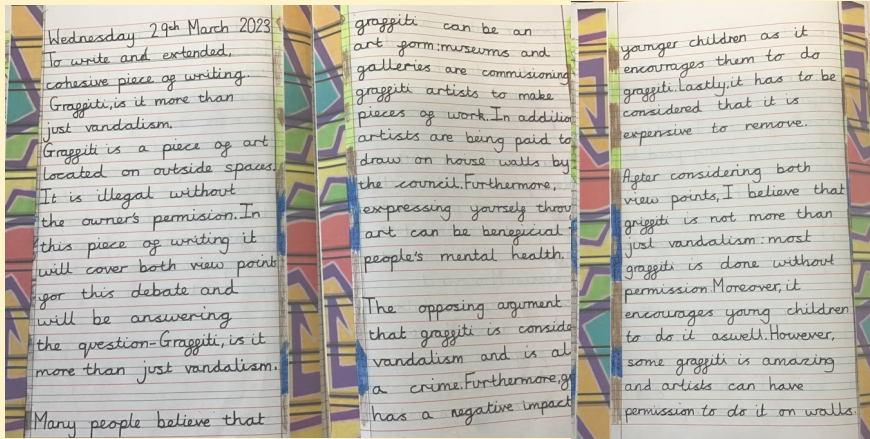 Wednesday 29th March 2023
To write and extended,
cohesive piece of writing.
Graffiti,is it more than
just vandalism.
Graffiti is a piece of art
located on outside spaces.
It is illegal without
the owner's permision.In
this piece of writing it
will cover both view point
for this debate and
will be answering
the question-Graffiti, is it
more than just vandalism.
Many people believe that
graffiti can be an
art form:museums and
galleries are commisioning
graffiti artists to make
pieces of work.In addition
artists are being paid to
draw on house walls by
the council.Furthermore,
expressing yourself throu
art can be beneficial
people's mental health.
The opposing argument
that graffiti is conside
vandalism and is al
a crime.Furthermore,g
has a negative impact
younger children as it
encourages them to do
graffiti.Lastly,it has to be
considered that it is
expensive to remove.
After considering both
view points,I believe that
griffiti is not more than
just vandalism:most
graffiti is done without
permission.Moreover,it
encourages young children
to do it aswell.However,
some graffiti is amazing
and artists can have
permission to do it on walls.